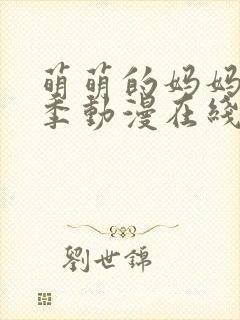 萌萌的妈妈
季動漫在綫
劉世錦